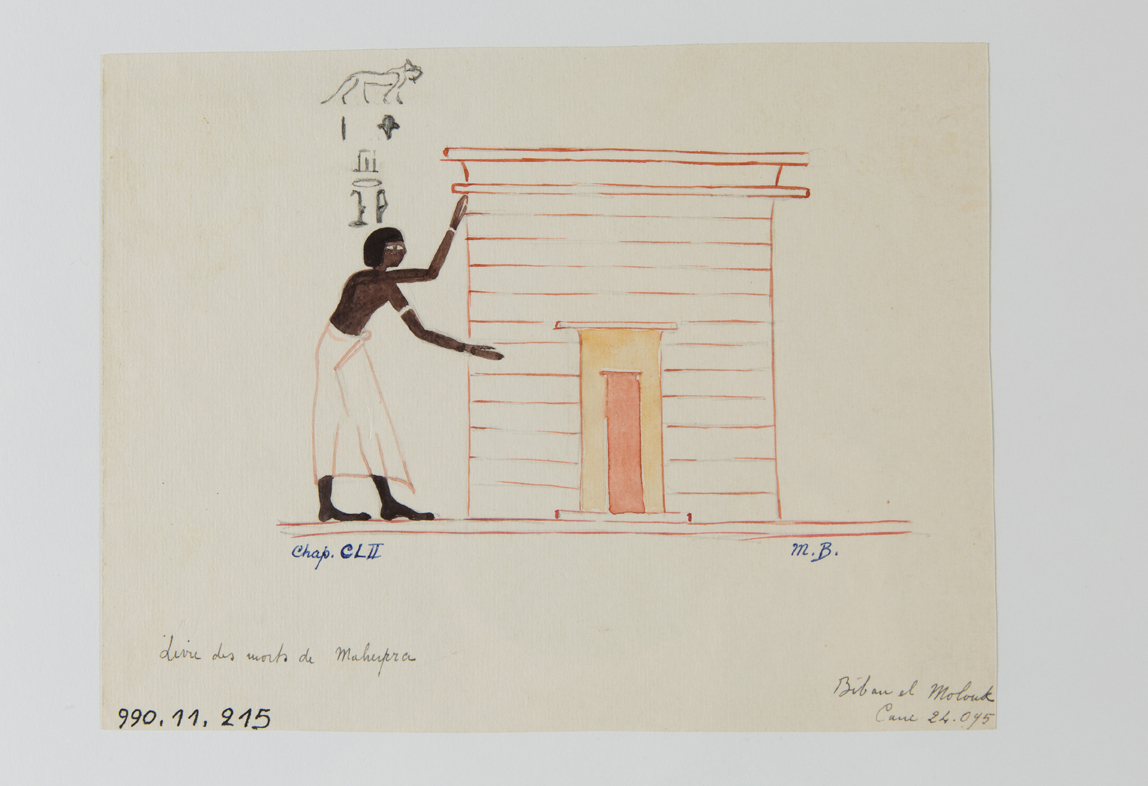 Chap. CLII
M. B.
Livre des morts de Maherpra
Biban el Molouk
Caire 24.095
990.11.215